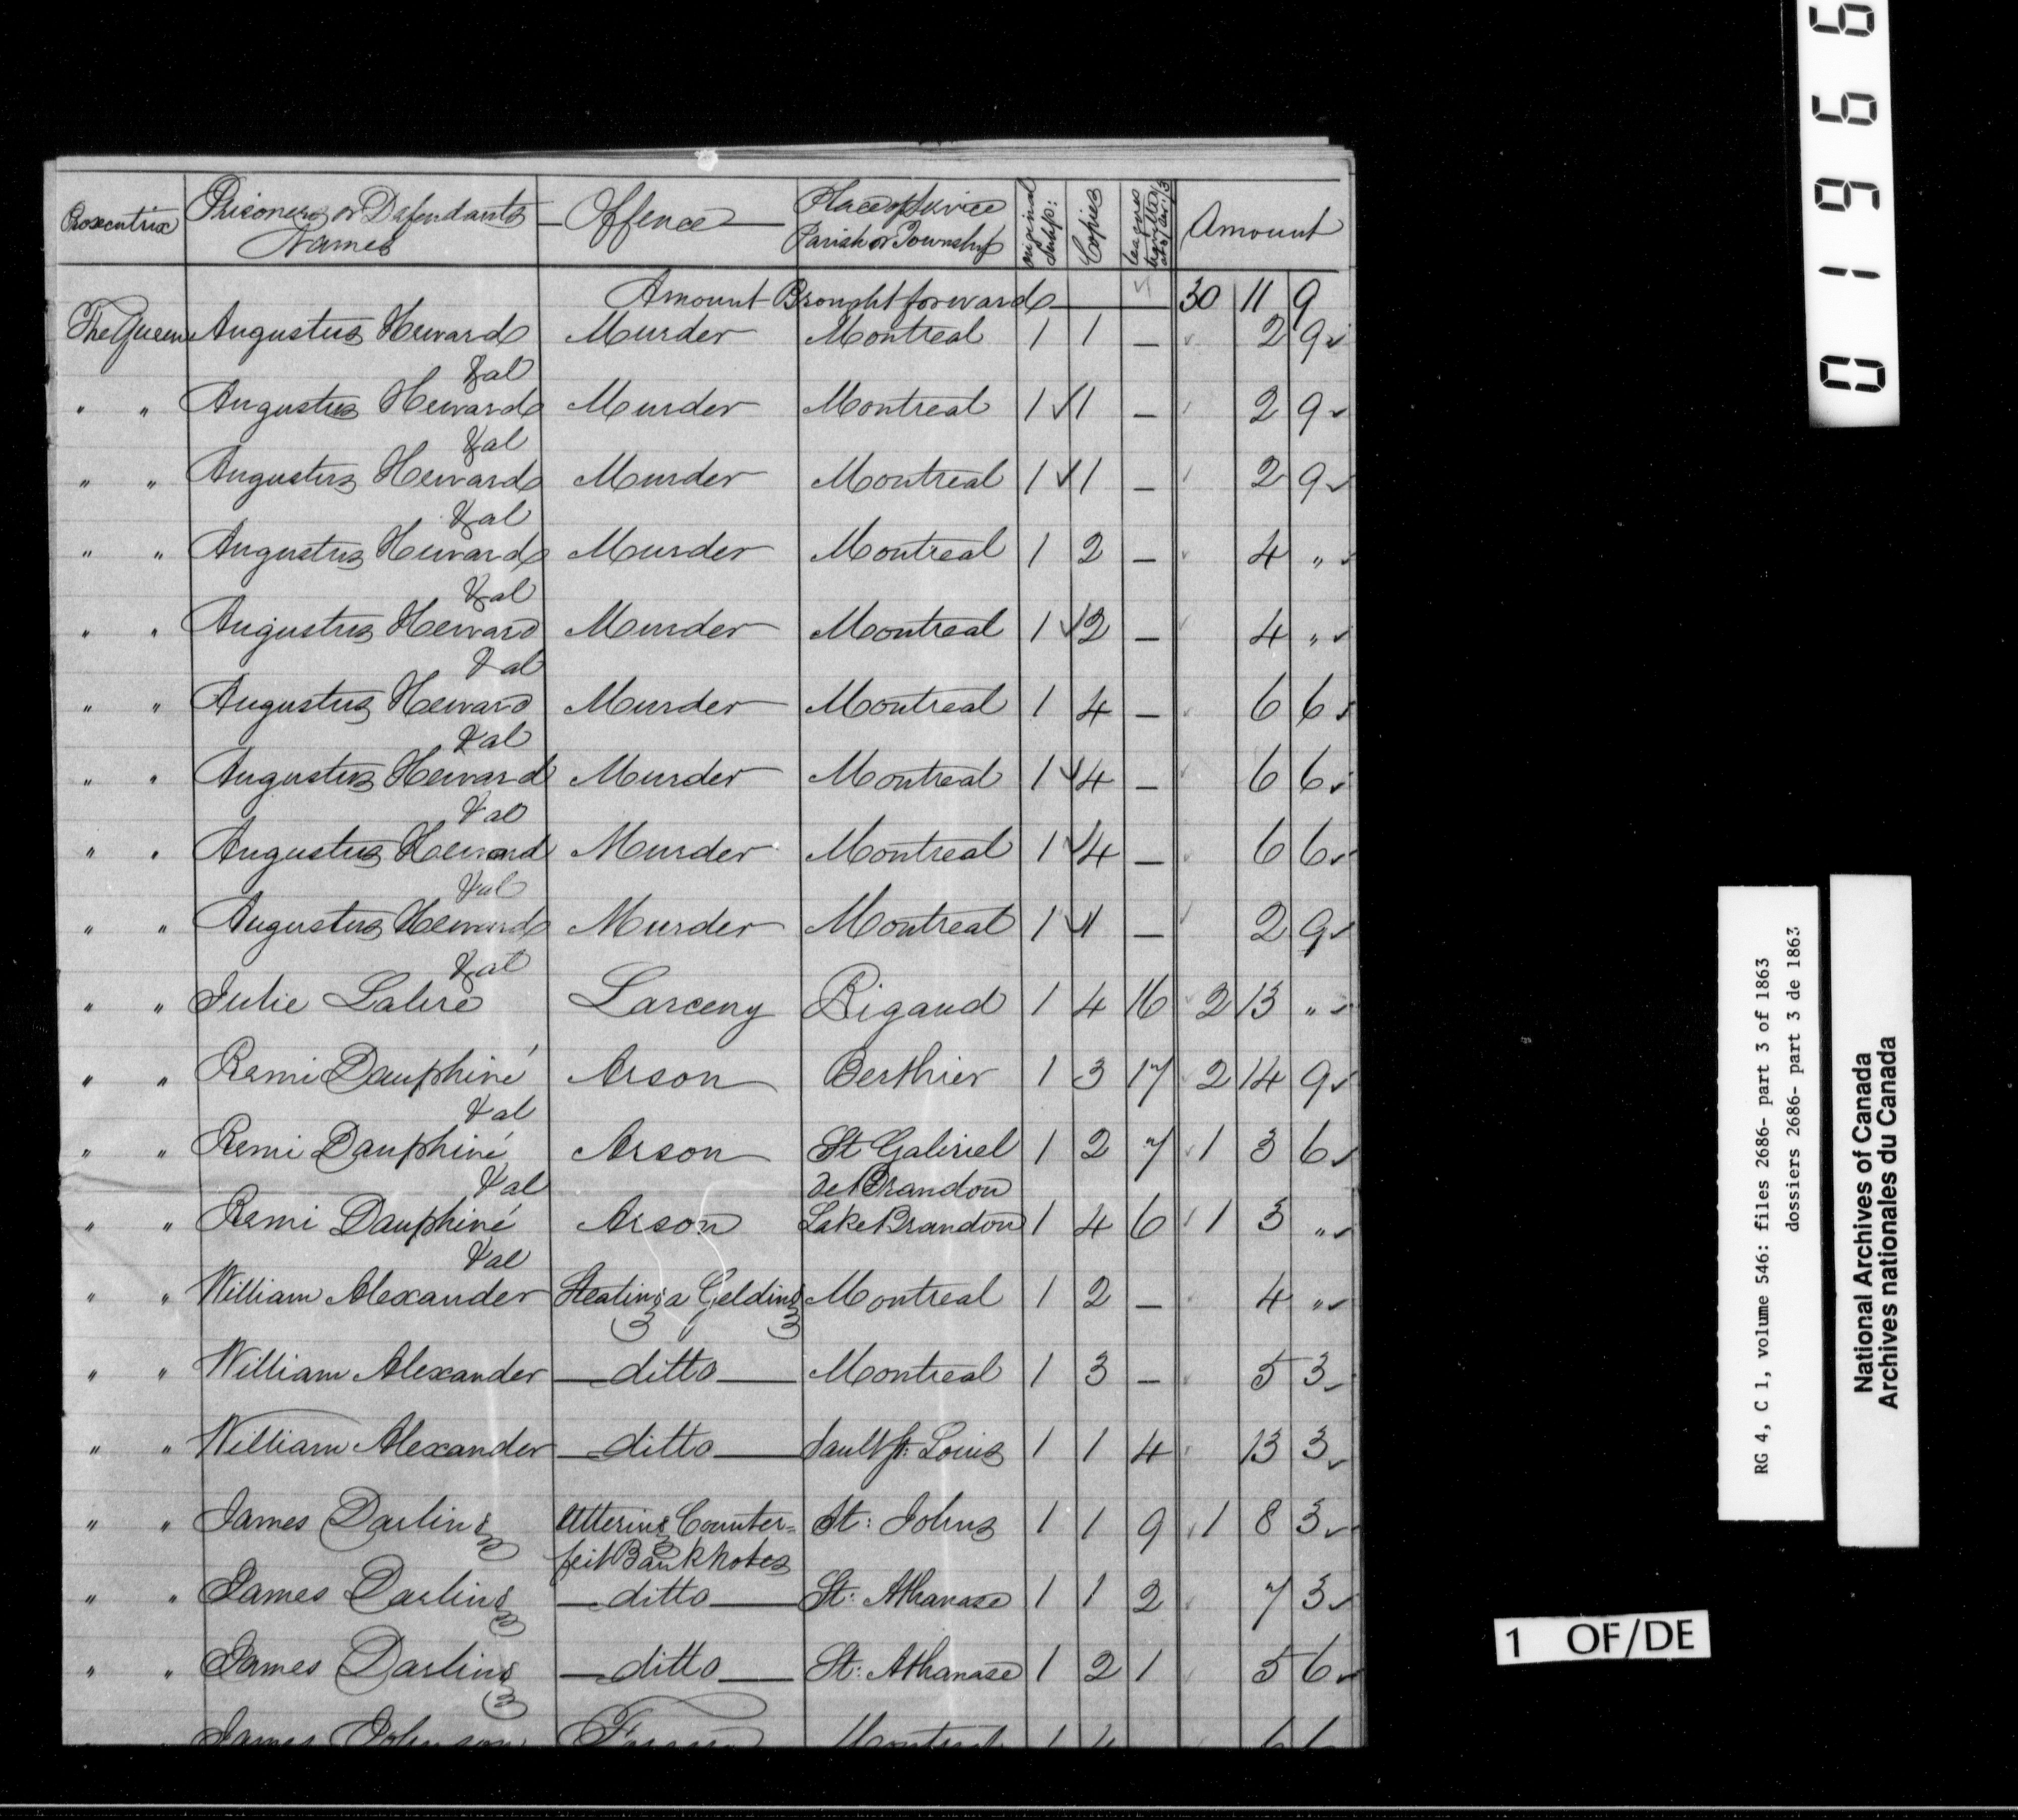 Prosecutrix Prisoners or Defendants Names Offence Place of Service Parish or Township original Subp: Copies leagues Amount
Amount Brought forward 30 11 9
The Queen Augustus Heward &al Murder Montreal 1 1 — 2 9
" " Augustus Heward &al Murder Montreal 1 1 — 2 9
" " Augustus Heward &al Murder Montreal 1 1 — 2 9
" " Augustus Heward &al Murder Montreal 1 2 — 4 "
" " Augustus Heward &al Murder Montreal 1 2 — 4 "
" " Augustus Heward &al Murder Montreal 1 4 — 6 6
" " Augustus Heward &al Murder Montreal 1 4 — 6 6
" " Augustus Heward &al Murder Montreal 1 4 — 6 6
" " Augustus Heward &al Murder Montreal 1 1 — 2 9
" " Julie Larceny Rigaud 1 4 16 2 13 "
" " Remi Dauphiné &al Arson Berthier 1 3 17 2 14 9
" " Remi Dauphiné &al Arson St Gabriel de Brandon 1 2 7 1 3 6
" " Remi Dauphiné &al Arson Lake Brandon 1 4 6 1 3 "
" " William Alexander Stealing a Gelding Montreal 1 2 — 4 "
" " William Alexander — ditto — Montreal 1 3 — 5 3
" " William Alexander — ditto — Sault St: Louis 1 1 4 13 3
" " James Darling Uttering Counter= feit Bank Notes St: Johns 1 1 9 1 8 3
" " James Darling — ditto — St: Athanase 1 1 2 7 3
" " James Darling — ditto — St: Athanase 1 2 1 5 6
James Johnson Montreal 1 4 6 6
01966
RG 4, C 1, volume 546: files 2686- part 3 of 1863
dossiers 2686- part 3 de 1863
National Archives of Canada
Archives nationales du Canada
1 OF/DE